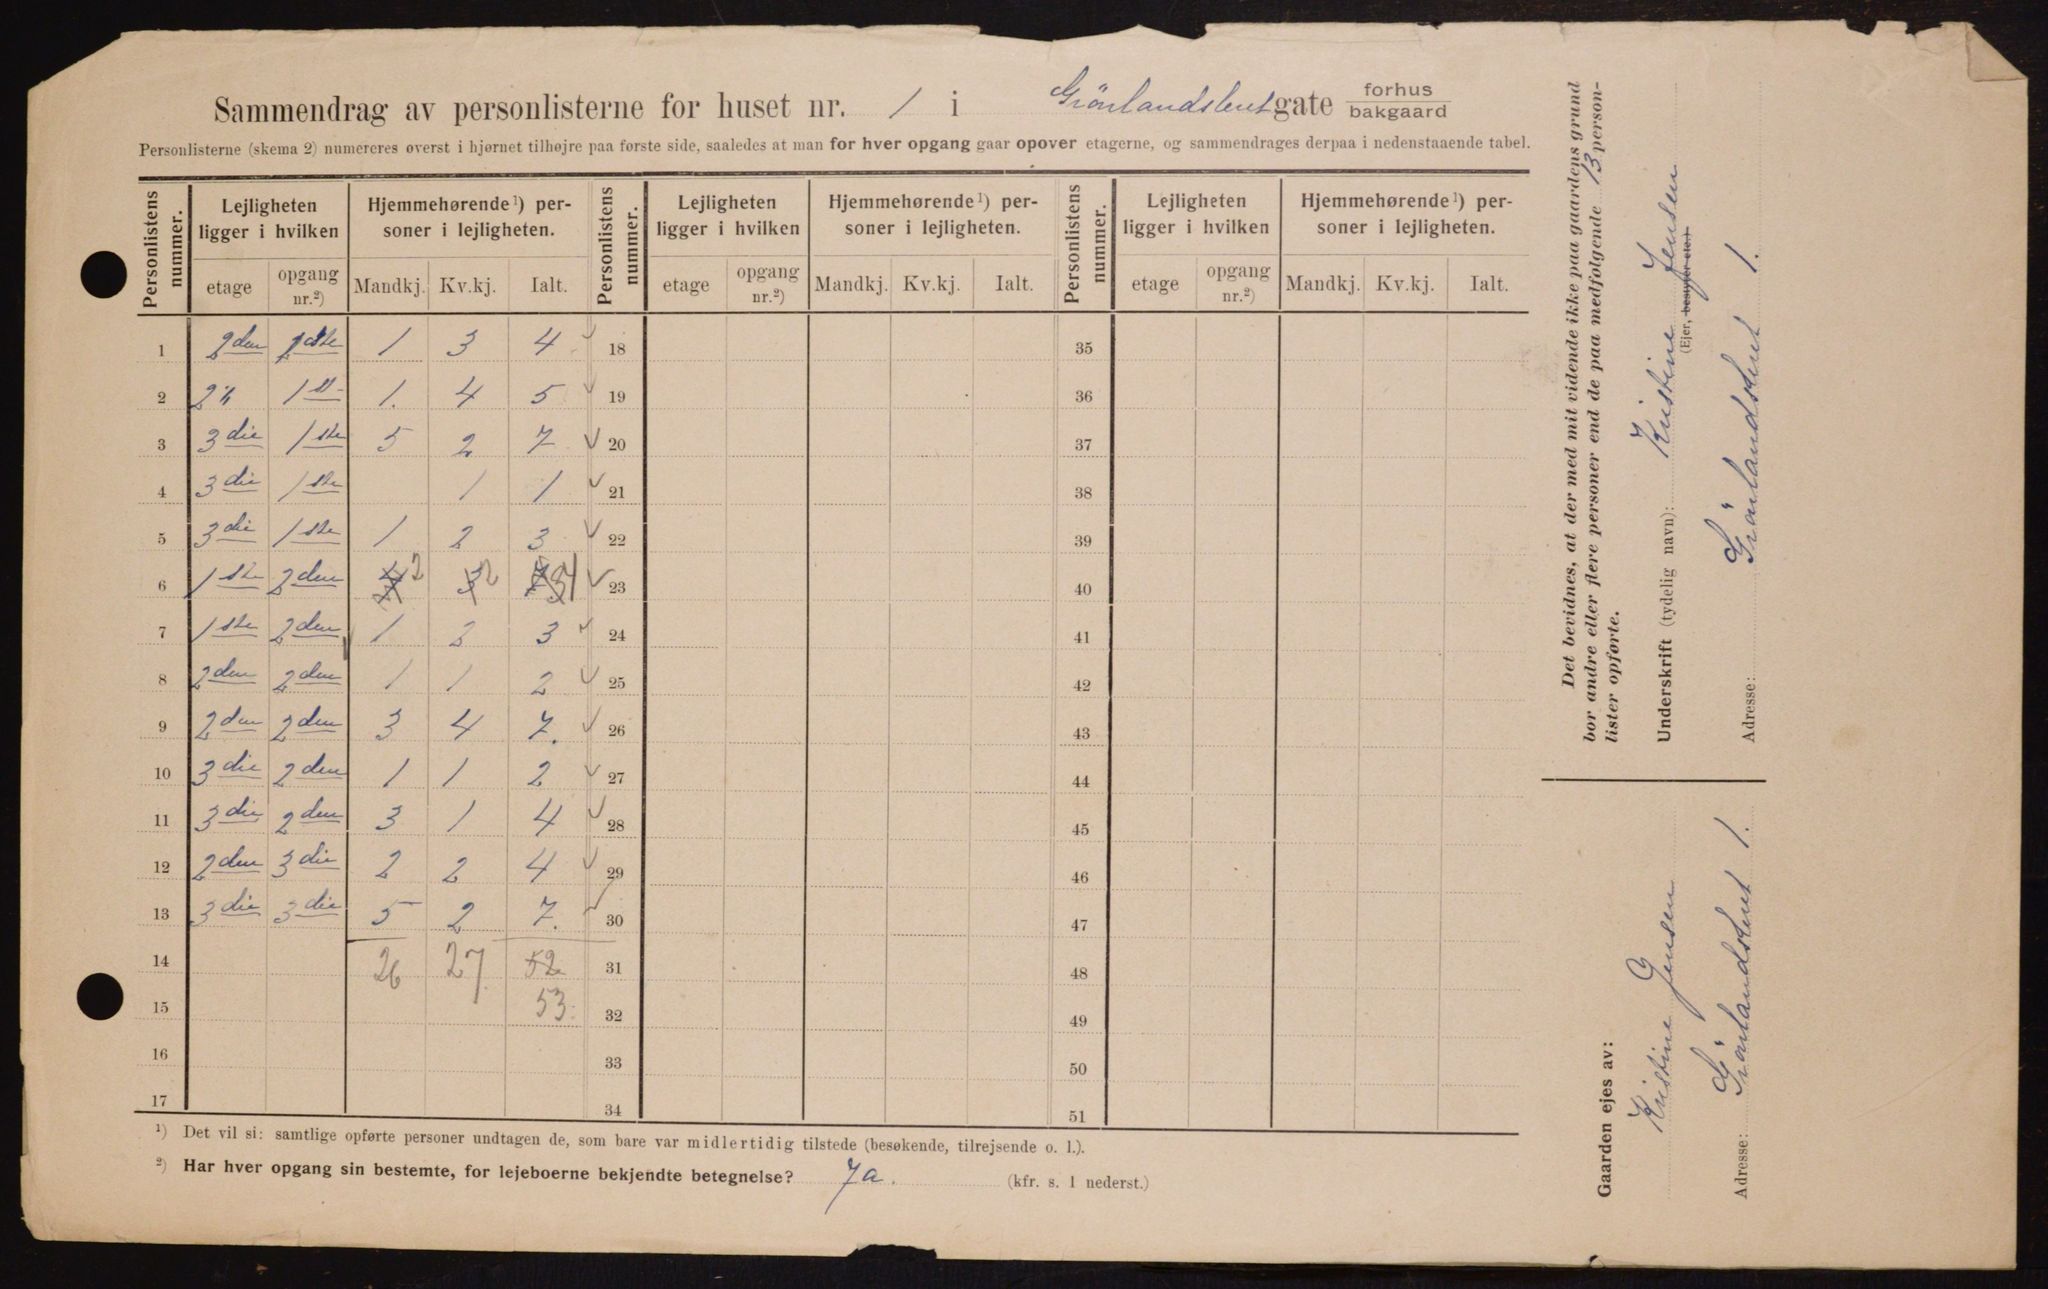 Sammendrag av personlisterne for huset nr. 1 i Grönlandsleret gate forhus bakgaard
Personlisterne (skema 2) numereres øverst i hjørnet tilhøjre paa første side, saaledes at man for hver opgang gaar opover etagerne, og sammendrages derpaa i nedenstaaende tabel.
Personlistens nummer. Lejligheten ligger i hvilken Hjemmehørende ¹) personer i lejligheten. Personlistens nummer. Lejligheten ligger i hvilken Hjemmehørende ¹) personer i lejligheten. Personlistens nummer. Lejligheten ligger i hvilken Hjemmehørende ¹) personer i lejligheten.
etage opgang nr.²) Mandkj. Kv.kj. Ialt. etage opgang nr.²) Mandkj. Kv.kj. Ialt. etage opgang nr.²) Mandkj. Kv.kj. Ialt.
1 2den 1ste 1 3 4 18 35
2 2" 1st 1. 4 5 19 36
3 3die 1ste 5 2 7 20 37
4 3die 1ste 1 1 21 38
5 3die 1ste 1 2 3 22 39
6 1ste 2den 2 2 4 23 40
7 1ste 2den 1 2 3 24 41
8 2den 2den 1 1 2 25 42
9 2den 2den 3 4 7. 26 43
10 3die 2den 1 1 2 27 44
11 3die 2den 3 1 4 28 45
12 2den 3die 2 2 4 29 46
13 3die 3die 5 2 7. 30 47
14 26 27 52 31 48
15 53. 32 49
16 33 50
17 34 51
¹) Det vil si: samtlige opførte personer undtagen de, som bare var midlertidig tilstede (besøkende, tilrejsende o. l.).
²) Har hver opgang sin bestemte, for lejeboerne bekjendte betegnelse? Ja. (kfr. s. 1 nederst.)
Det bevidnes, at der med mit vidende ikke paa gaardens grund
bor andre eller flere personer end de paa medfølgende 13 person-
lister opførte.
Underskrift (tydelig navn): Kristine Jensen
(Ejer, bestyrer etc.)
Adresse: Grönlandsleret 1.
Gaarden ejes av:
Kristine Jensen
Adresse: Grönlandsleret 1.